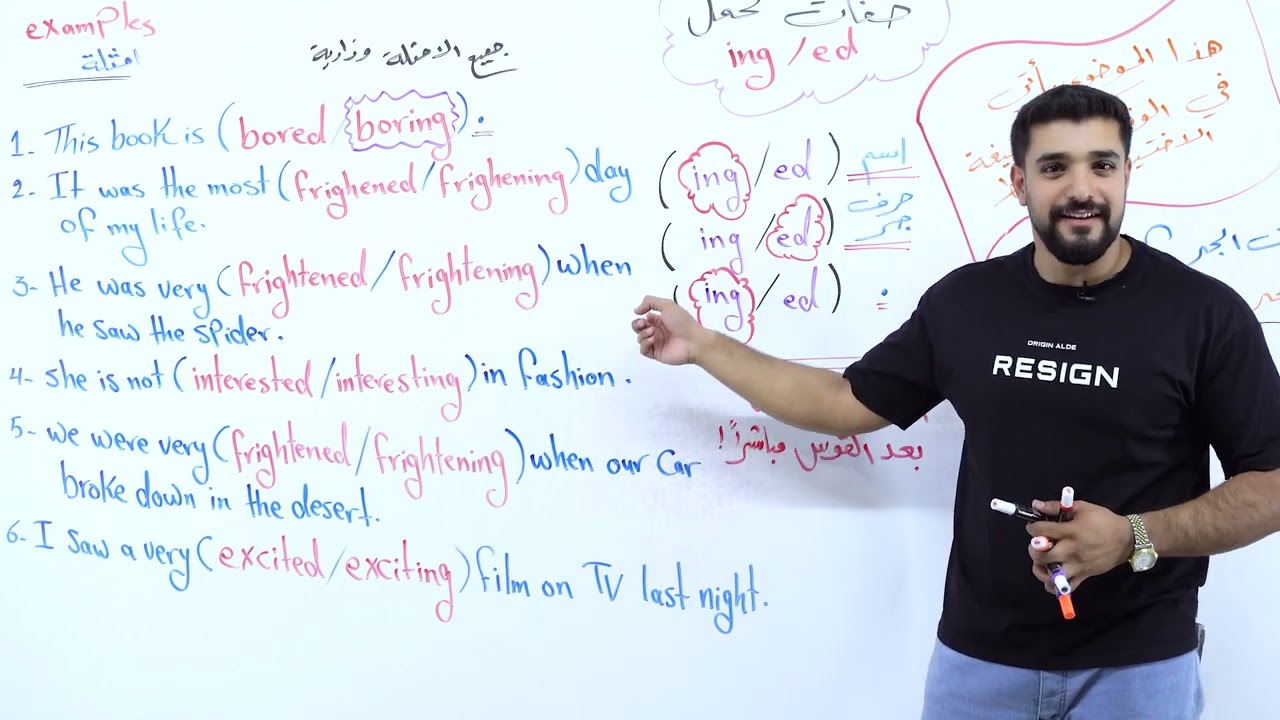 examples
امثلة
جميع الامثلة وزارية
1- This book is (bored/boring).
2- It was the most (frighened/frighening) day
of my life.
3- He was very (frightened/frightening) when
he saw the spider.
4- she is not (interested/interesting) in fashion.
5- we were very (frightened/frightening) when our car
broke down in the desert.
6- I saw a very (excited/exciting) film on TV last night.
صفات تحمل
ing/ed
(ing/ed) اسم
(ing/ed) حرف جر
(ing/ed) .
بعد القوس مباشراً!
هذا الموضوع يأتي
في
ORIGIN ALDE
RESIGN